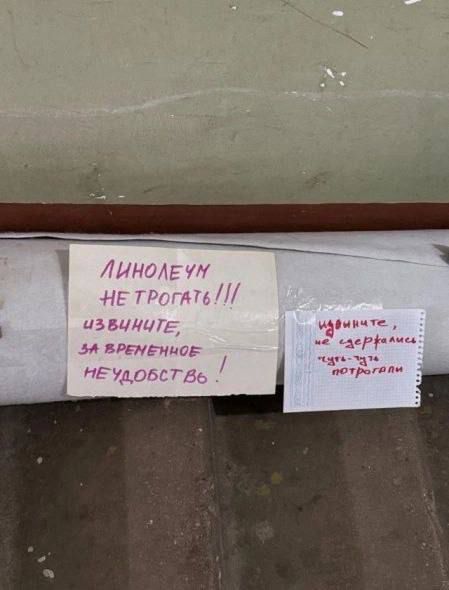 ЛИНОЛЕУМ
НЕ ТРОГАТЬ!!!
ИЗВИНИТЕ,
ЗА ВРЕМЕННОЕ
НЕУДОБСТВЬ!
извините,
не сдержались
чуть-чуть
потрогали